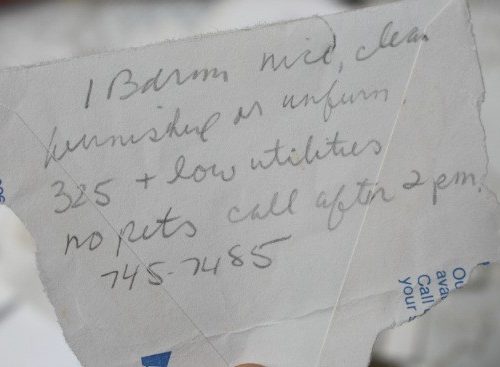 1 Bdrm nice, clean
furnished or unfurn.
325 + low utilities
no pets call after 2 pm.
745-7485
Call
your